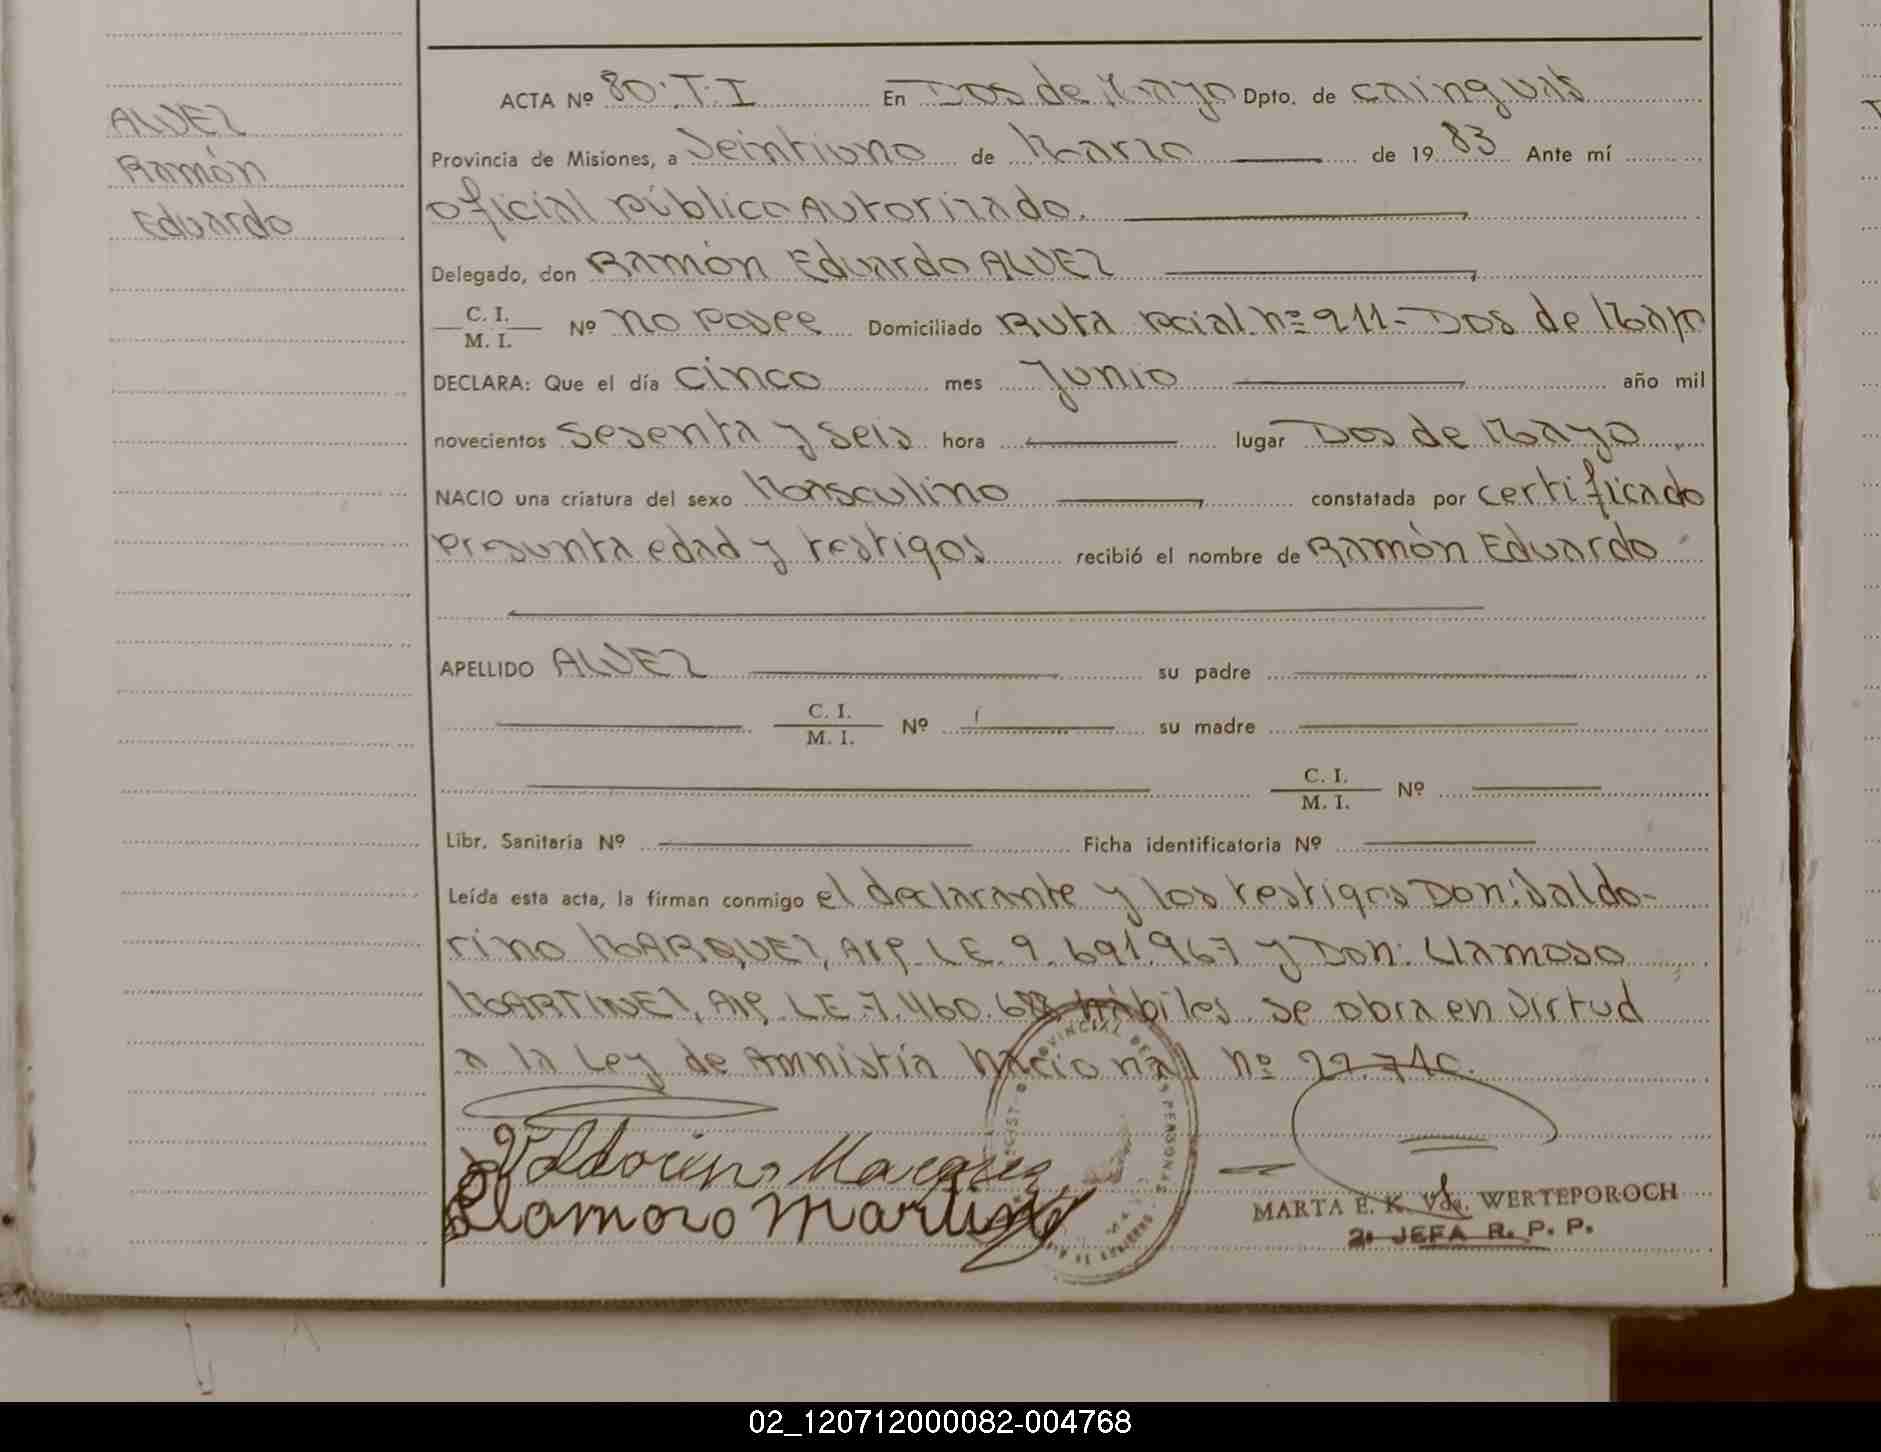 ALVEZ
Ramón
Eduardo
ACTA Nº 80.T.I En Dos de Mayo Dpto. de Cainguás
Provincia de Misiones, a Veintiuno de Marzo de 1983 Ante mí
oficial público Autorizado.
Delegado, don Ramón Eduardo ALVEZ
C. I.
M. I. Nº no posee Domiciliado Ruta pcial. nº 211-Dos de Mayo
DECLARA: Que el día cinco mes Junio año mil
novecientos sesenta y seis hora lugar Dos de Mayo
NACIO una criatura del sexo Masculino constatada por certificado
presunta edad y testigos recibió el nombre de Ramón Eduardo
APELLIDO ALVEZ su padre
C. I.
M. I. Nº su madre
C. I.
M. I. Nº
Libr. Sanitaria Nº Ficha identificatoria Nº
Leída esta acta, la firman conmigo el declarante y los testigos Don: Valdo-
rino MARQUEZ, Arg. L.E. 9.691.967 y Don: Llamoso
MARTINEZ, Arg. L.E. 7.460. hábiles. Se obra en virtud
a la Ley de Amnistía Nacional nº
Valdorino Marquez
Llamozo Martinez
PROVINCIAL DE PERSONAS
MARTA E. K. Vda. WERTEPOROCH
2ª JEFA R. P. P.
02_120712000082-004768